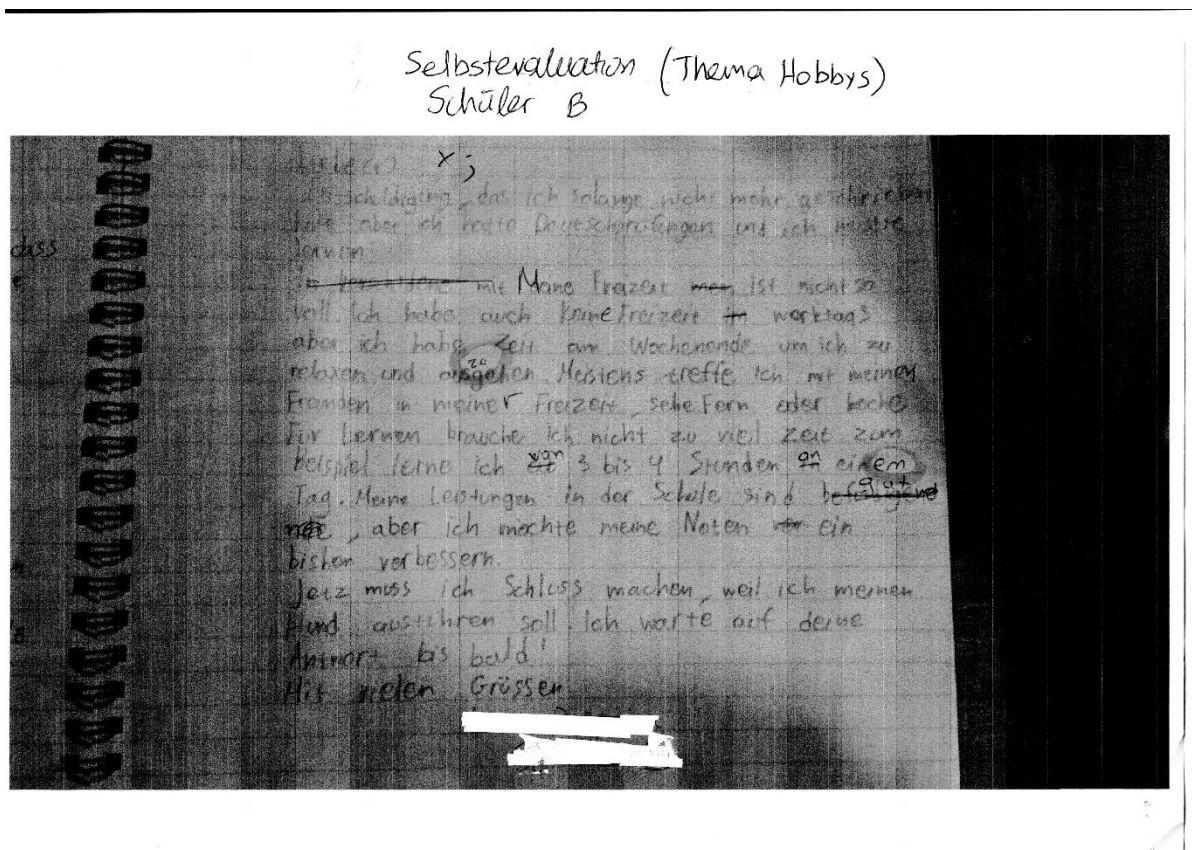 Selbstevaluation (Thema Hobbys)
Schüler B
x;
schuldigung, das ich solange nicht mehr geschrieben
habe aber ich hatte Deutschprüfungen und ich musste
dass
lernen
mit Maine Freizeit men Ist nicht so
voll. Ich habe auch keine Freizeit in werktags
aber ich habe Zeit am Wochenende um ich zu
relaxen und ausgehen. Meistens treffe ich mit meinen
zu
Freunden in meiner Freizeit, sehe Fern oder koche
Für Lernen brauche ich nicht zu viel Zeit zum
Beispiel lerne ich von 3 bis 4 Stunden an einem
Tag. Meine Leistungen in der Schule sind
gut
, aber ich mochte meine Noten ein
bisher verbessern.
Jetz muss ich Schluss machen, weil ich meinen
Hund ausführen soll. Ich warte auf deine
Antwort bis bald!
Mit vielen Grüssen